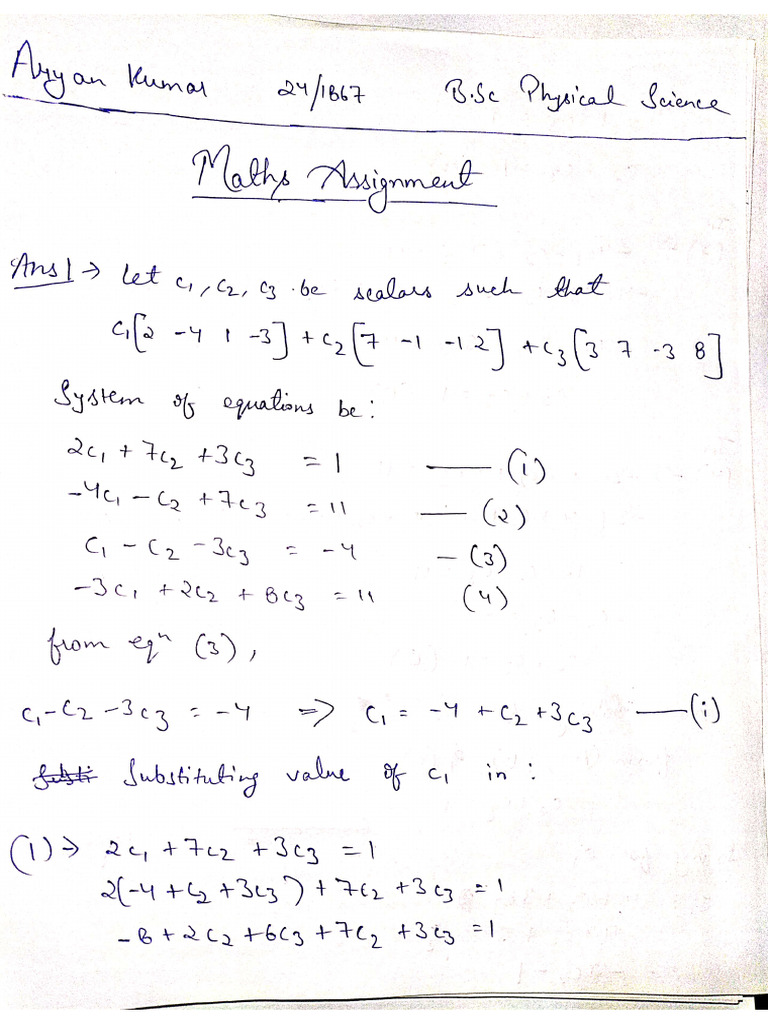 Aryan Kumar 24/1867 B.Sc Physical Science
Maths Assignment
Ans1 → Let c₁, c₂, c₃ be scalars such that
c₁[2 -4 1 -3] + c₂[7 -1 -1 2] + c₃[3 7 -3 8]
System of equations be:
2c₁ + 7c₂ + 3c₃ = 1 —— (i)
-4c₁ - c₂ + 7c₃ = 11 — (2)
c₁ - c₂ - 3c₃ = -4 - (3)
-3c₁ + 2c₂ + 8c₃ = 11 (4)
from eqⁿ (3),
c₁ - c₂ - 3c₃ = -4 => c₁ = -4 + c₂ + 3c₃ —— (i)
Substituting value of c₁ in:
(1) → 2c₁ + 7c₂ + 3c₃ = 1
2(-4 + c₂ + 3c₃) + 7c₂ + 3c₃ = 1
-8 + 2c₂ + 6c₃ + 7c₂ + 3c₃ = 1